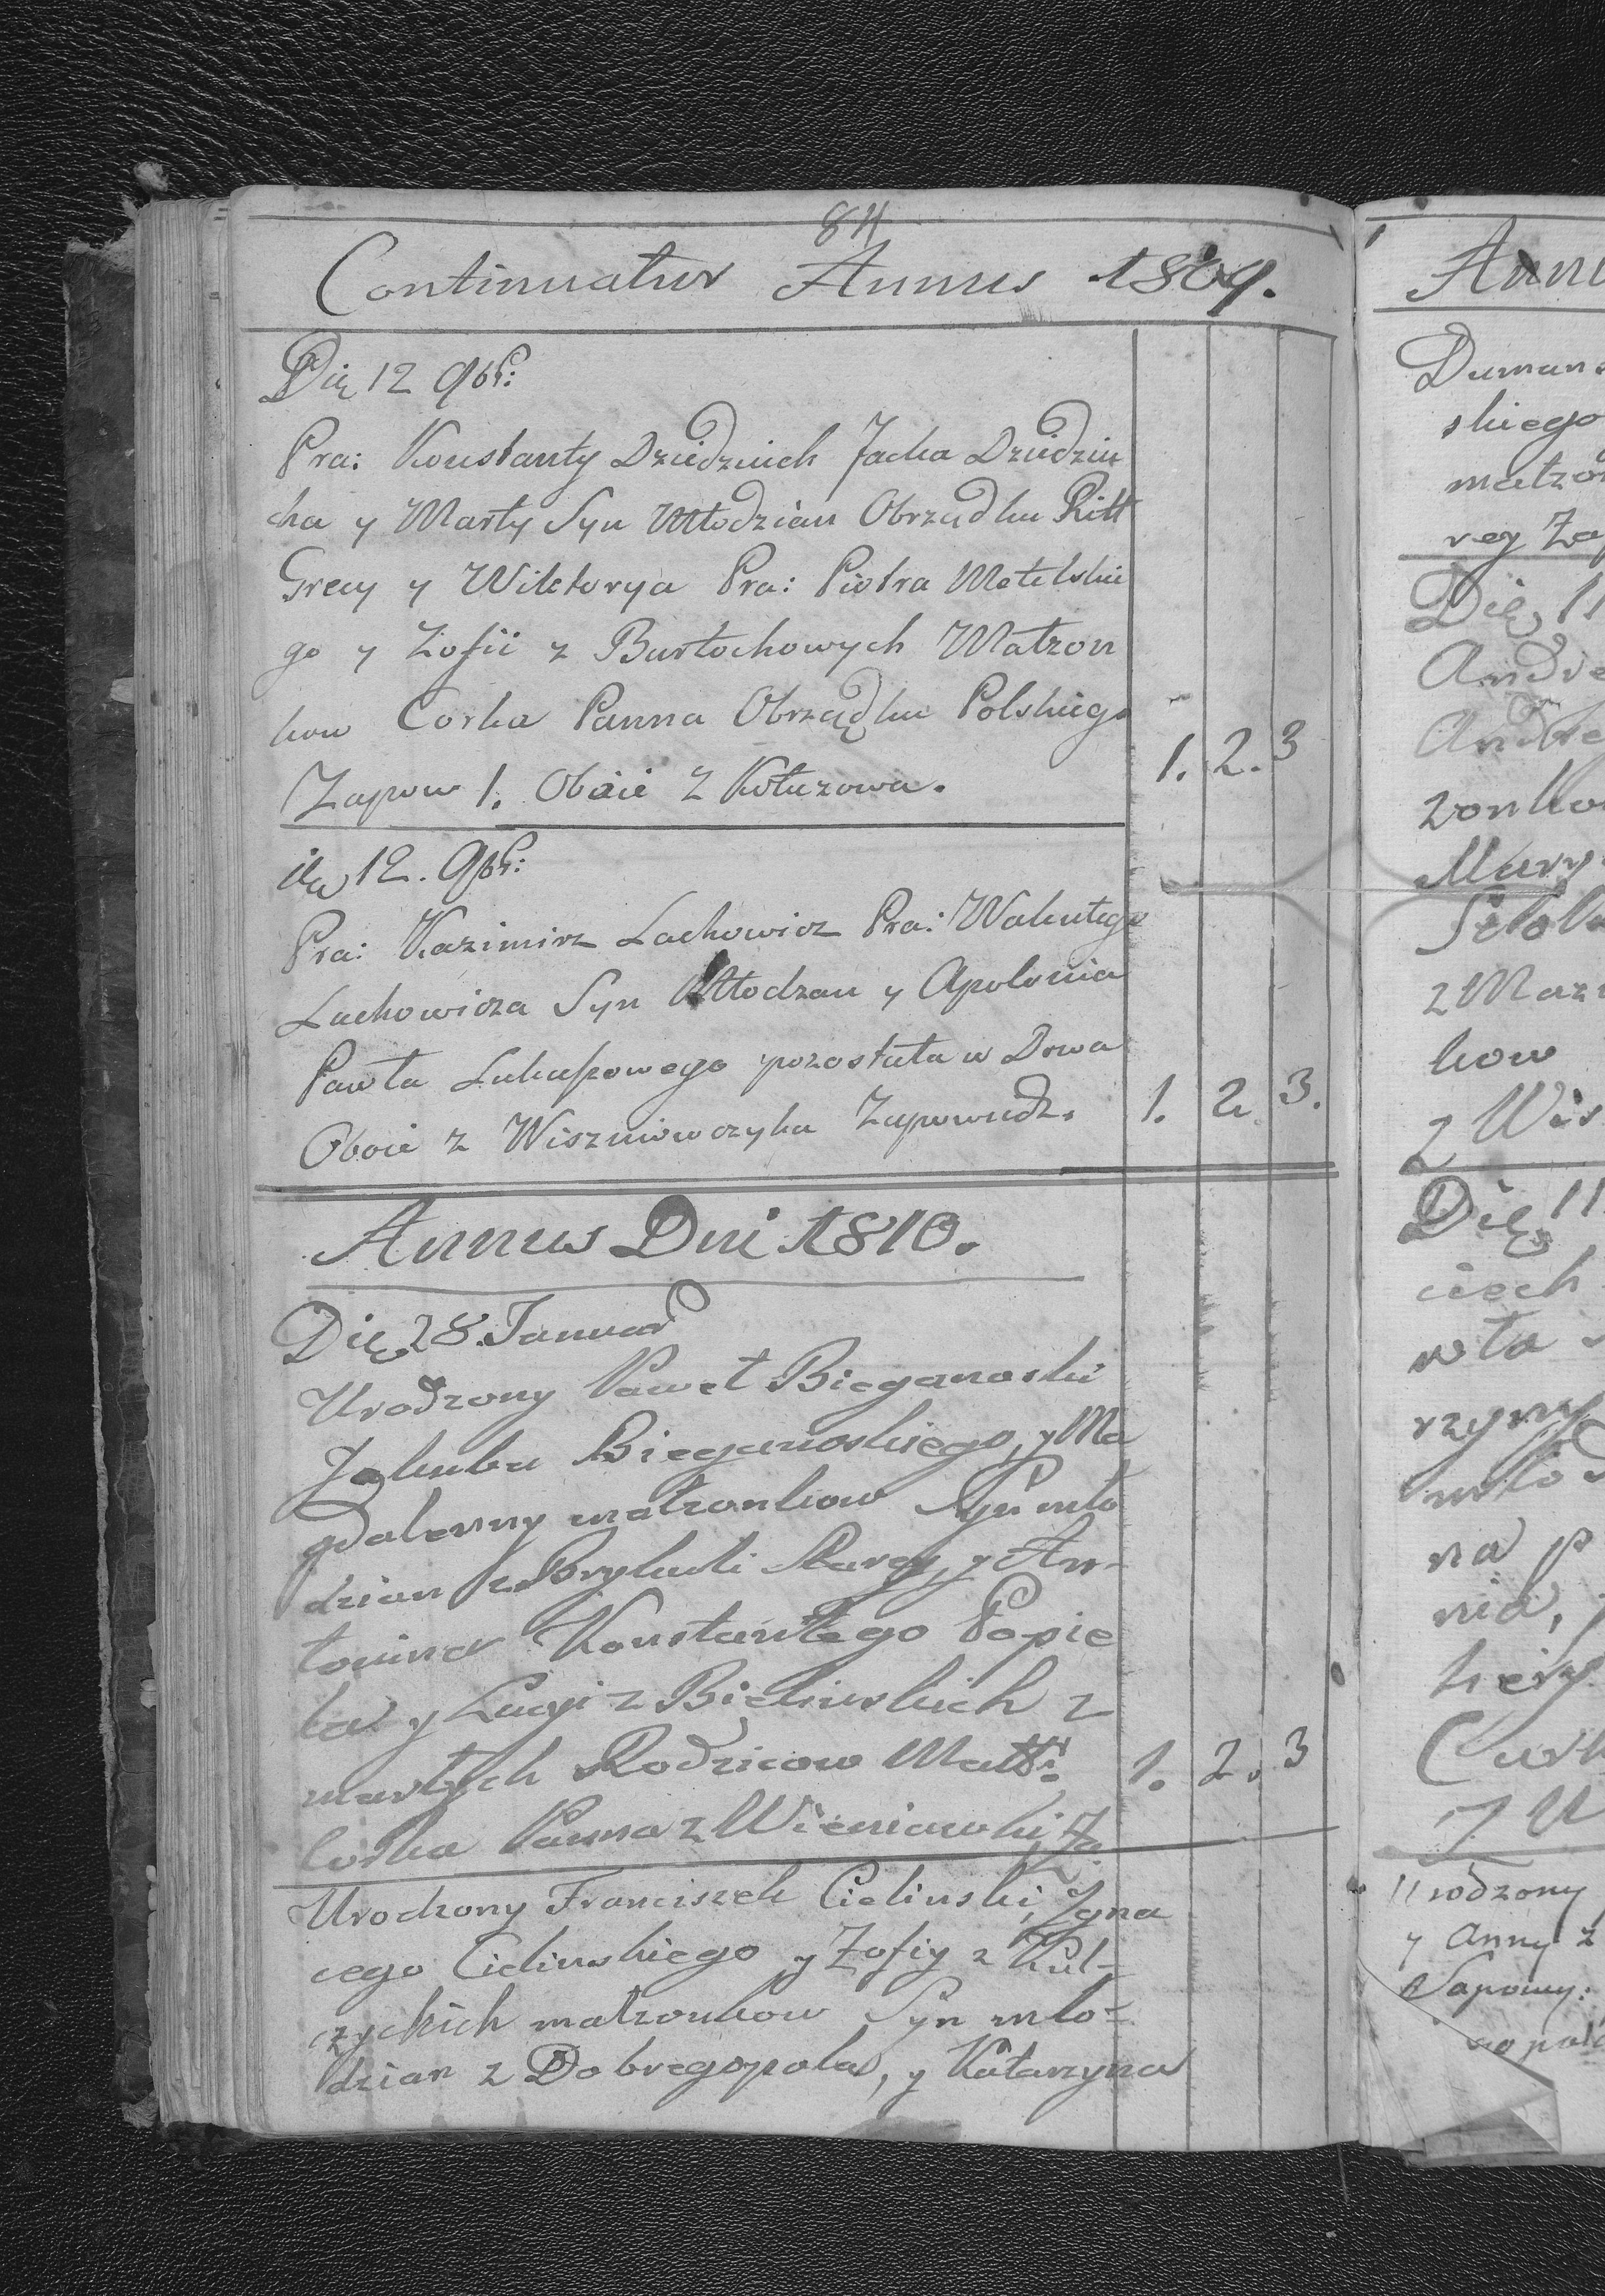 84
Continuatur Annus 1809.
Die 12 9br:
Pra: Konstanty Dziedzich Jacka Dziedzi
cha y Marty Syn Młodzian Obrządku Ritt
Grecy y Wiktorya Pra: Piotra Motelskie
go y Zofii z Burłochowych Małzon
kow Corka Panna Obrządku Polskiego
Zapow 1. Oboie z Kotuzowa. 1. 2. 3
12. 9br:
Pra: Kazimirz Lachowicz Pra: Walentego
Lachowicza Syn Młodzan y Apolonia
Pawła Lukaszowego pozostała w Dowa
Oboie z Wiszniowczyka Zapowiedz. 1. 2. 3.
Annus Dni 1810.
Die 28. Januar
Urodzony Paweł Bieganoski
Jakuba Bieganoskiego, y Ma
gdalenny małzonkow Syn mło
dzian z Starey, y An-
tonina Konstantego Popie
la y Lucyi z Bielinskich z
marłych Rodzicow Małż:
Corka Panna z Wieniawki, Za. 1. 2. 3
Urodzony Franciszek Cielinski, Igna
cego Cielinskiego y Zofiy z Kul-
czyckich małzonkow Syn mło-
dzian z Dobregopola, y Katarzyna
Ann
Duman
skiego
małzon
rey Zap
Die 11
Andre
Andre
zonko
Mary
z Maz
kow
z Wis
Die 11
ciech
wła
mło
na p
nia,
Cur
z W
Urodzony
y Anny z
Zapowy: